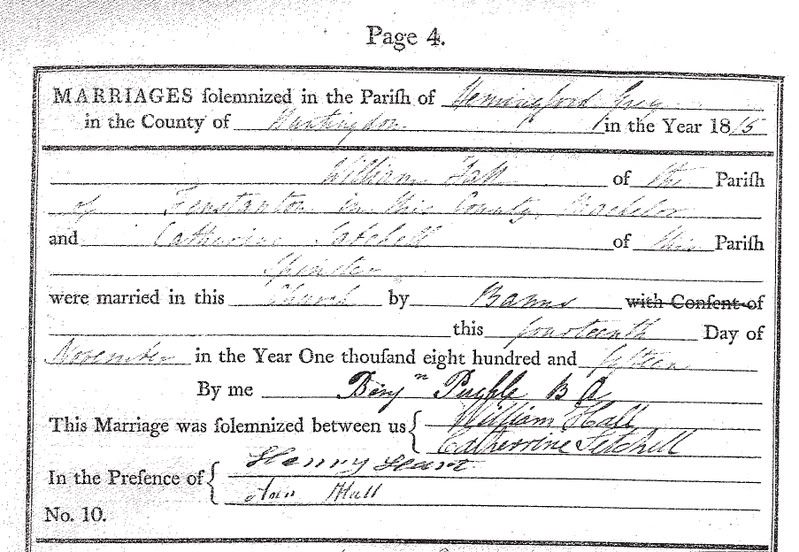 Page 4.
MARRIAGES ſolemnized in the Pariſh of Hemingford Grey
in the County of Huntingdon in the Year 1815
William Hall of the Pariſh
of Fenstanton in this County Bachelor
and Catherine Setchell of this Pariſh
Spinster
were married in this Church by Banns with Conſent of
this fourteenth Day of
November in the Year One thouſand eight hundred and fifteen
By me Benjn B A
This Marriage was ſolemnized between us William Hall
Catherrine Setchell
In the Preſence of Henry
Ann Hall
No. 10.